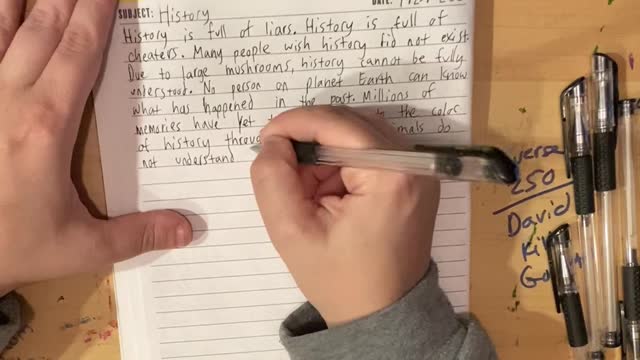 SUBJECT: History
DATE:
History is full of liars. History is full of
cheaters. Many people wish history did not exist
Due to large mushrooms, history cannot be fully
understood. No person on planet Earth can know
what has happened in the past. Millions of
memories have yet the color
of history do
not understand
250
David